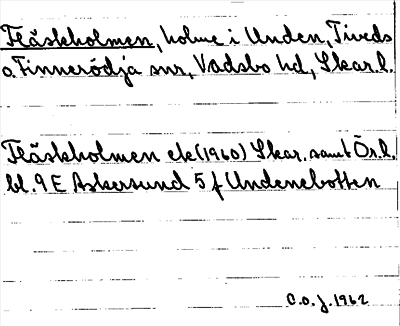 Fläskholmen, holme i Unden, Tiveds
o. Finnerödja snr, Vadsbo hd, Skar. l.
Fläskholmen ek (1960) Skar. samt Ör. l.
bl. 9 E Askersund 5 f Undenebotten
C.O.J. 1962